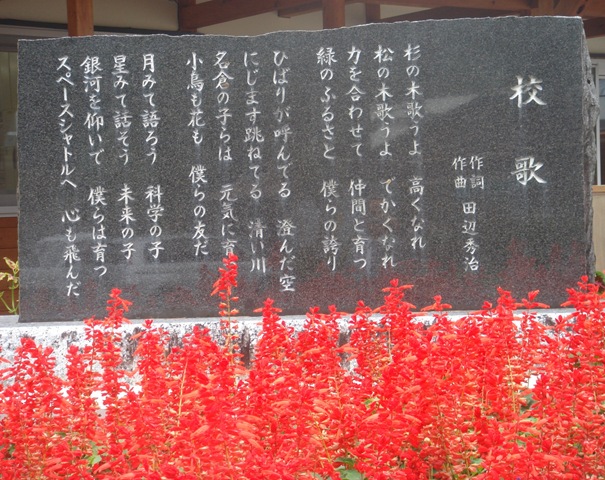 校歌
作詞
作曲 田辺秀治
杉の木歌うよ 高くなれ
松の木歌うよ でかくなれ
力を合わせて 仲間と育つ
緑のふるさと 僕らの誇り
ひばりが呼んでる 澄んだ空
にじます跳ねてる 清い川
名倉の子らは 元気に育
小鳥も花も 僕らの友だ
月みて語ろう 科学の子
星みて話そう 未来の子
銀河を仰いで 僕らは育つ
スペースシャトルへ 心も飛んだ